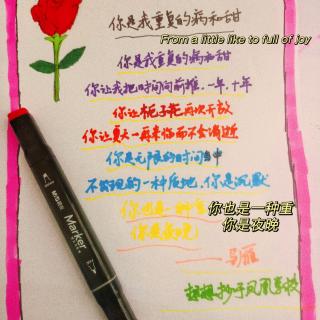 你是我重复的病和甜
From a little like to full of joy
你是我重复的病和甜
你让我把时间向前推、一年、十年
你让栀子花再次开放
你让夏天一再来临而不会消近
你是无限的时间当中
不出现的一种质地，你是沉默
你也是一种重
你也是一种重
你是夜晚
你是夜晚
——马雁
Marker